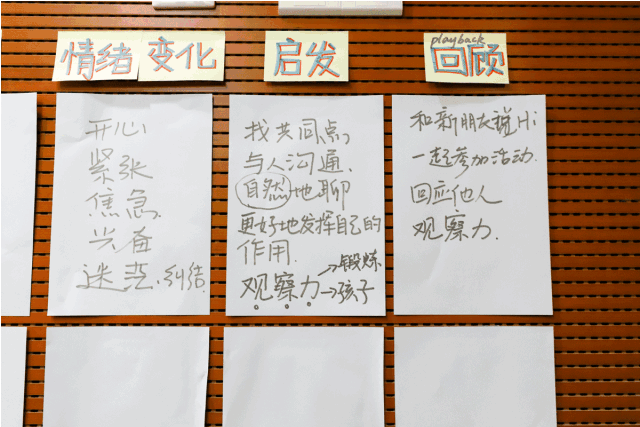 情绪 变化
开心
紧张
焦急
兴奋
迷茫、纠结
启发
找共同点
与人沟通、
自然地聊
更好地发挥自己的
作用.
观察力→锻炼
→孩子
playback
回顾
和新朋友说Hi
一起参加活动.
回应他人
观察力.